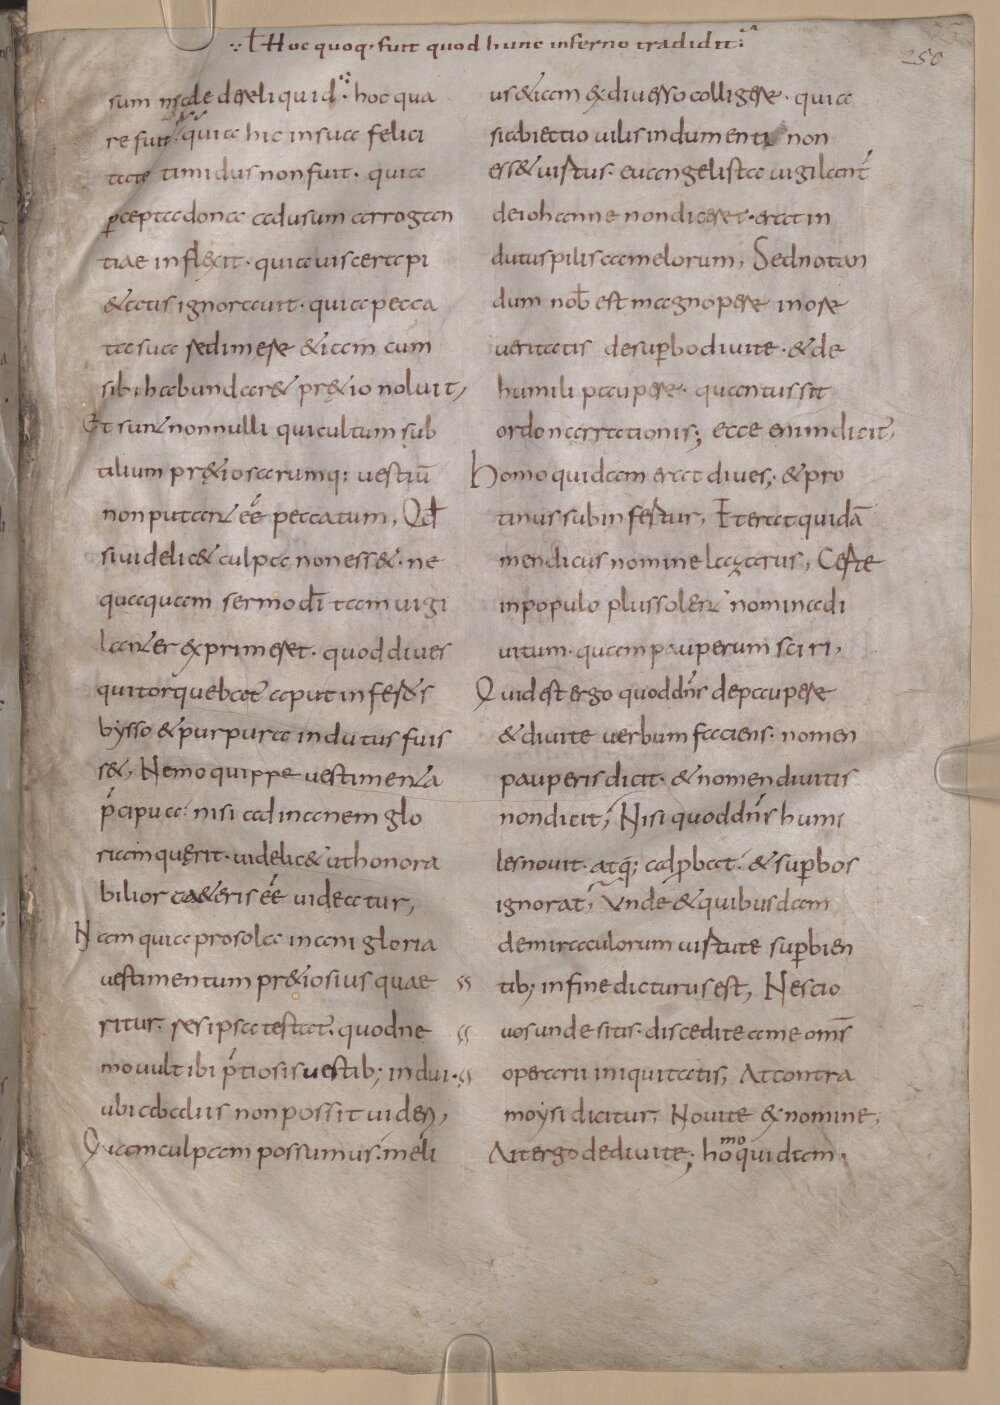 ł Hoc quoq; fuit quod hunc inferno tradidit;
250
sum inde dereliquid; hoc qua
re fuit; quia hic in sua felici
tate timidus non fuit. quia
pcepta dona ad usum arrogan
tiae inflexit. quia viscera pi
&atis ignoravit. quia pecca
ta sua redimere &iam cum
sibi habundar& pr&io noluit,
Et sunt nonnulli qui cultum sub
tilium pr&iosarumq; vestiū
non putant eē peccatum, Qđ
si videlic& culpa non ess&. ne
quaquam sermo dī tam vigi
lanter exprimeret. quod dives
qui torquebat apud inferos
bysso & purpura indutus fuis
s&, Nemo quippe vestimenta
p̄cipua nisi ad inanem glo
riam querit. videlic& ut honora
bilior c&eris eē videatur,
Nam quia pro sola inani gloria
vestimentum pr&iosius quae
ritur. res ipsa testat. quod ne
mo vult ibi p̄tiosis vestib; indui.
ubi ab aliis non possit videri,
Quam culpam possumus. meli
us &iam ex diverso colligere. quia
si abiectio vilis indumenti non
ess& virtus. evangelista vigilant̄
de iohanne non diceret. erat in
dutus pilis camelorum, Sed notan
dum nob̄ est magnopere in ore
veritatis de superbo divite. & de
humili paupere. quantus sit
ordo narrationis; ecce enim dicit,
Homo quidam erat dives; & pro
tinus subinfertur, Et erat quidā
mendicus nomine lazarus, Certe
in populo plus solent nomina di
vitum. quam pauperum sciri,
Quid est ergo quod dn̄s de paupere
& divite verbum faciens. nomen
pauperis dicit. & nomen divitis
non dicit, Nisi quod dn̄s humi
les novit. atq; adpbat. & superbos
ignorat, Unde & quibusdam
de miraculorum virtute superbien
tib; in fine dicturus est, Nescio
vos unde sitis. discedite a me om̄s
operarii iniquitatis, At contra
moysi dicitur, Novi te ex nomine,
Ait ergo de divite; homo quidam.